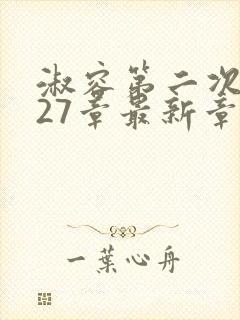 淑容第二次
27章最新章
一葉心舟